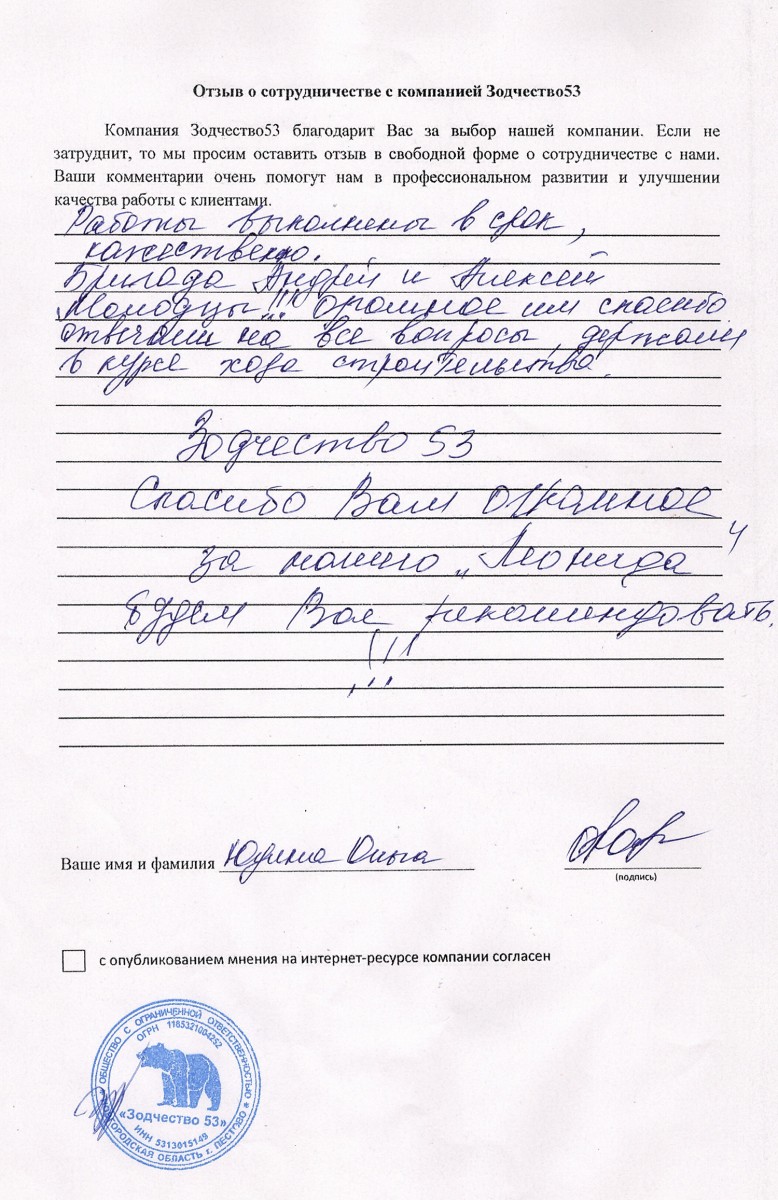 Отзыв о сотрудничестве с компанией Зодчество53
Компания Зодчество53 благодарит Вас за выбор нашей компании. Если не
затруднит, то мы просим оставить отзыв в свободной форме о сотрудничестве с нами.
Ваши комментарии очень помогут нам в профессиональном развитии и улучшении
качества работы с клиентами.
Работы выполнены в срок,
качественно.
Бригада Андрей и Алексей
Молодцы!!! огромное им спасибо
отвечали на все вопросы, держали
в курсе хода строительства.
Зодчество 53
Спасибо Вам огромное
за нашего „Леонида"
Будем Вас рекомендовать.
!!!
Ваше имя и фамилия Юдина Ольга
(подпись)
с опубликованием мнения на интернет-ресурсе компании согласен
ОБЩЕСТВО С ОГРАНИЧЕННОЙ ОТВЕТСТВЕННОСТЬЮ
ОГРН 1165321004252
«Зодчество 53»
ИНН 5313015149
ГОРОДСКАЯ ОБЛАСТЬ г. ПЕСТОВО